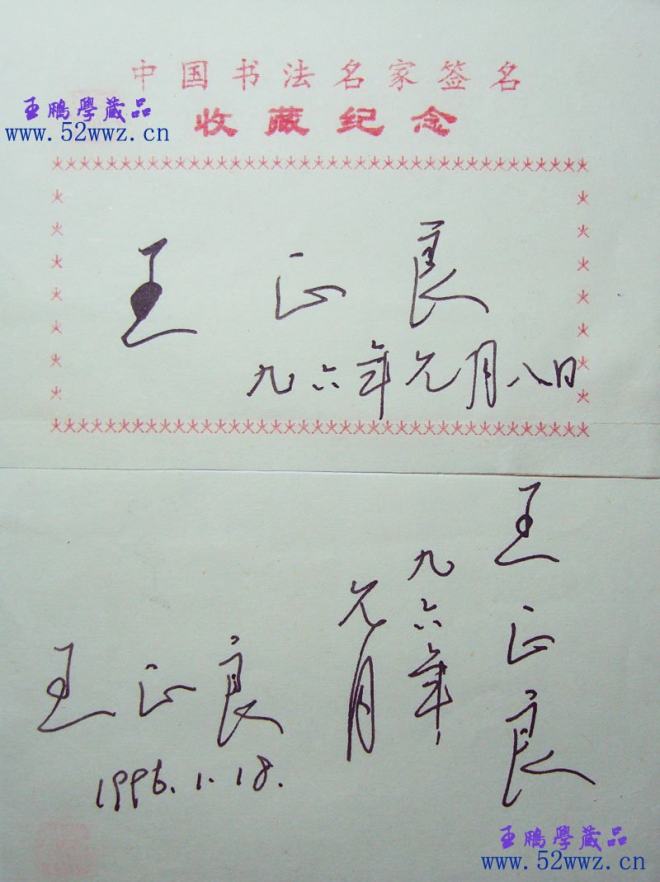 中国书法名家签名
收藏纪念
王鹏學藏品
www.52wwz.cn
王正良
九六年元月八日
王正良
九六年
元月
王正良
1996.1.18.
王鹏學藏品
www.52wwz.cn